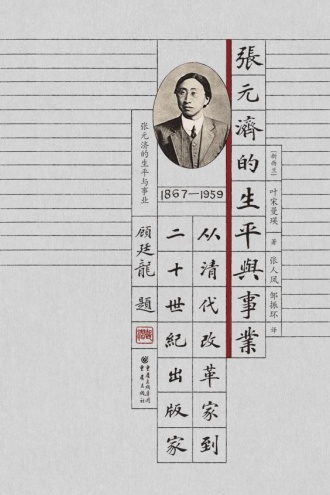 張元濟的生平與事業
[新西兰] 叶宋曼瑛 著 张人凤 邹振环 译
1867—1959
从清代改革家到
二十世紀出版家
张元济的生平与事业
顾廷龍 题
重庆出版集团
重庆出版社